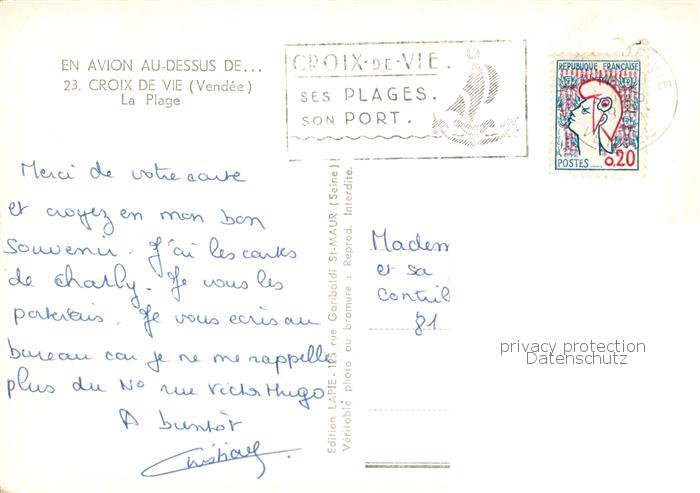 EN AVION AU-DESSUS DE...
23. CROIX DE VIE (Vendée)
La Plage
CROIX-DE-VIE.
SES PLAGES.
SON PORT.
REPUBLIQUE FRANÇAISE
0.20
POSTES
Merci de votre carte
et croyez en mon bon
Souvenir. J'ai les cartes
de Charly. Je vous les
porterais. Je vous ecris au
bureau car je ne me rappelle
plus du N° rue Victor Hugo.
A bientôt
Edition LAPIE - 125 rue Garibaldi St-MAUR (Seine)
Véritable photo au bromure : Reprod. Interdite.
Madem
et sa
contrib
81
privacy protection
Datenschutz